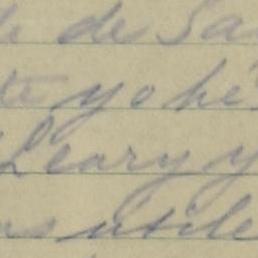 de Sa
te yo he
Leary y
as utile